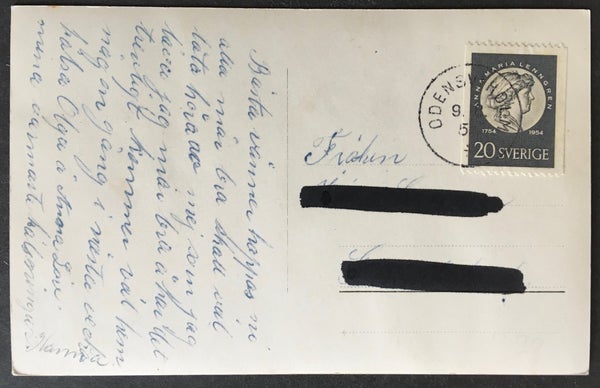 Bästa vänner hoppas ni
alla mår bra skall väl
låta höra av mej som jag
lovade jag mår bra å har det
trevligt kommer väl hem
någon gång i nästa vecka
hälsa Olga å Anna Lisa
mina varmaste hälsningar
Fröken
ODENS
9.
5
ANNA MARIA LENNGREN
1754 1954
20 SVERIGE